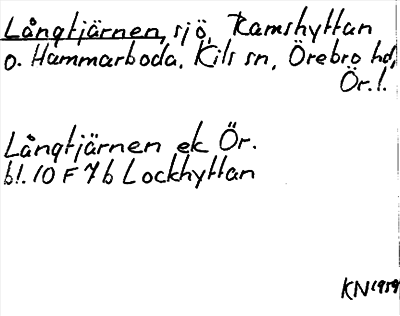 Långtjärnen, sjö, Ramshyttan
o. Hammarboda, Kils sn, Örebro hd,
Ör. l.
Långtjärnen ek Ör.
bl. 10 F 7 b Lockhyttan
KN 1959